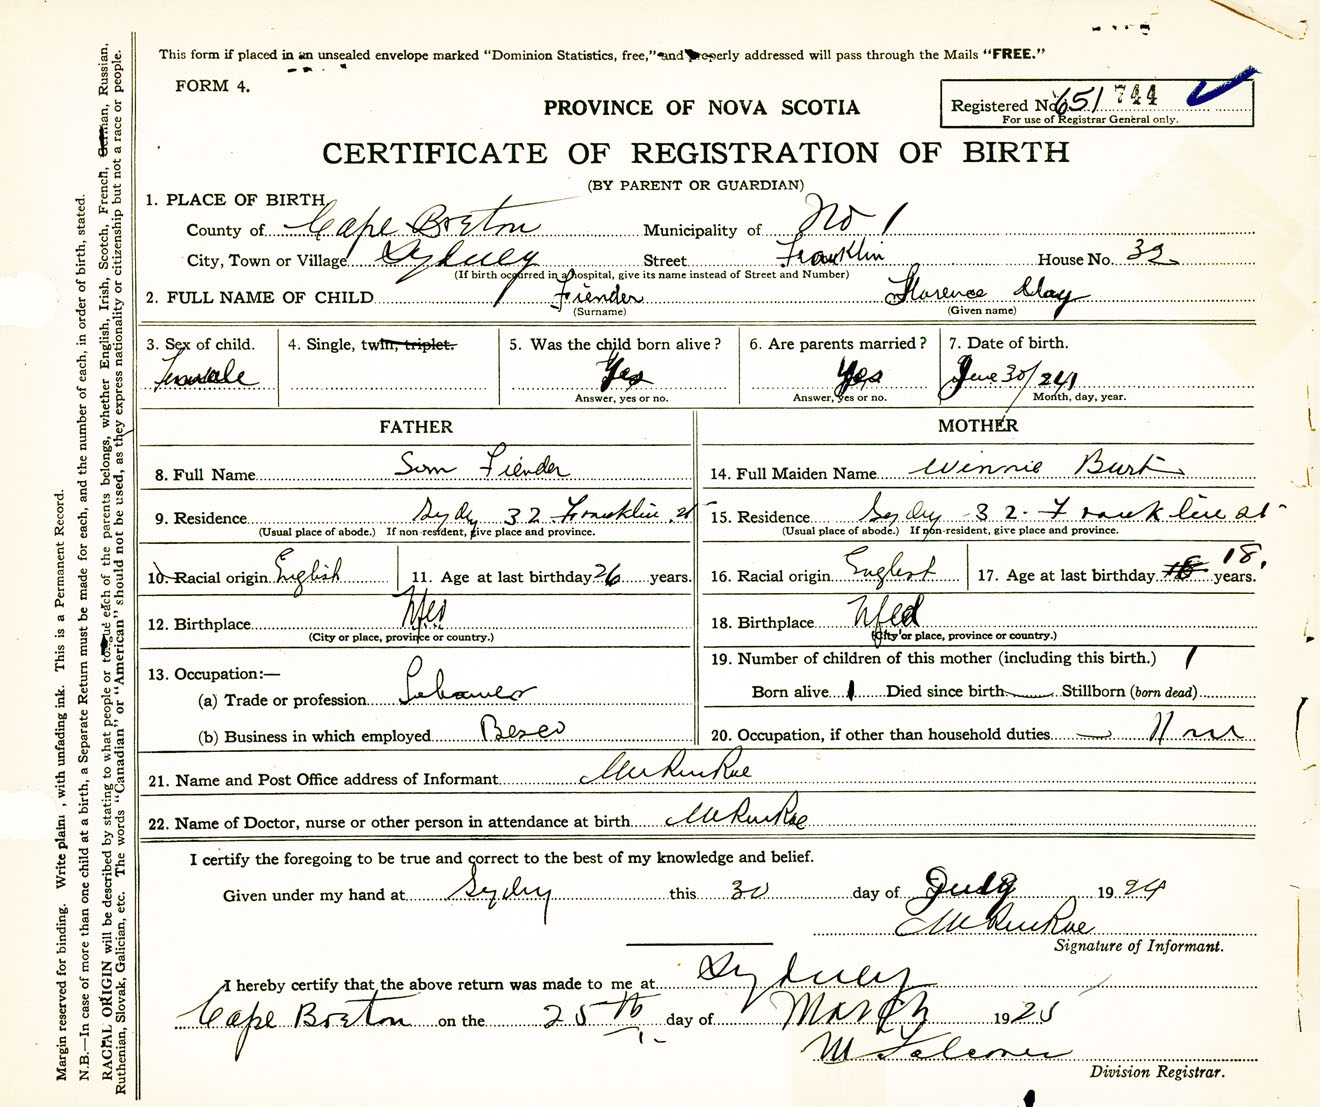 This form if placed in an unsealed envelope marked "Dominion Statistics, free," and properly addressed will pass through the Mails "FREE."
FORM 4.
PROVINCE OF NOVA SCOTIA
Registered No. 651 744
For use of Registrar General only.
CERTIFICATE OF REGISTRATION OF BIRTH
(BY PARENT OR GUARDIAN)
1. PLACE OF BIRTH
County of Cape Breton Municipality of No 1
City, Town or Village Sydney Street Franklin House No. 32
(If birth occurred in a hospital, give its name instead of Street and Number)
2. FULL NAME OF CHILD Fiender Florence May
(Surname) (Given name)
3. Sex of child. 4. Single, twin, triplet. 5. Was the child born alive? 6. Are parents married? 7. Date of birth.
Female Yes Yes June 30/24
Answer, yes or no. Answer, yes or no. Month, day, year.
FATHER MOTHER
8. Full Name Sam Fiender 14. Full Maiden Name Winnie Burt
9. Residence Sydny 32 Franklin st 15. Residence Sydny 32 Franklin st
(Usual place of abode.) If non-resident, give place and province. (Usual place of abode.) If non-resident, give place and province.
10. Racial origin English 11. Age at last birthday 26 years. 16. Racial origin English 17. Age at last birthday 18 years. 18.
12. Birthplace Nfld 18. Birthplace Nfld
(City or place, province or country.) (City or place, province or country.)
13. Occupation:— 19. Number of children of this mother (including this birth.) 1
(a) Trade or profession Born alive 1 Died since birth Stillborn (born dead)
(b) Business in which employed Besco 20. Occupation, if other than household duties
21. Name and Post Office address of Informant
22. Name of Doctor, nurse or other person in attendance at birth
I certify the foregoing to be true and correct to the best of my knowledge and belief.
Given under my hand at Sydny this 30 day of July 1924
Signature of Informant.
I hereby certify that the above return was made to me at Sydney
Cape Breton on the 25th day of March 1925
M Falconer
Division Registrar.
Margin reserved for binding. Write plain , with unfading ink. This is a Permanent Record.
N.B.—In case of more than one child at a birth, a Separate Return must be made for each, and the number of each, in order of birth, stated.
RACIAL ORIGIN will be described by stating to what people or tongue each of the parents belongs, whether English, Irish, Scotch, French, German, Russian,
Ruthenian, Slovak, Galician, etc. The words "Canadian" or "American" should not be used, as they express nationality or citizenship but not a race or people.